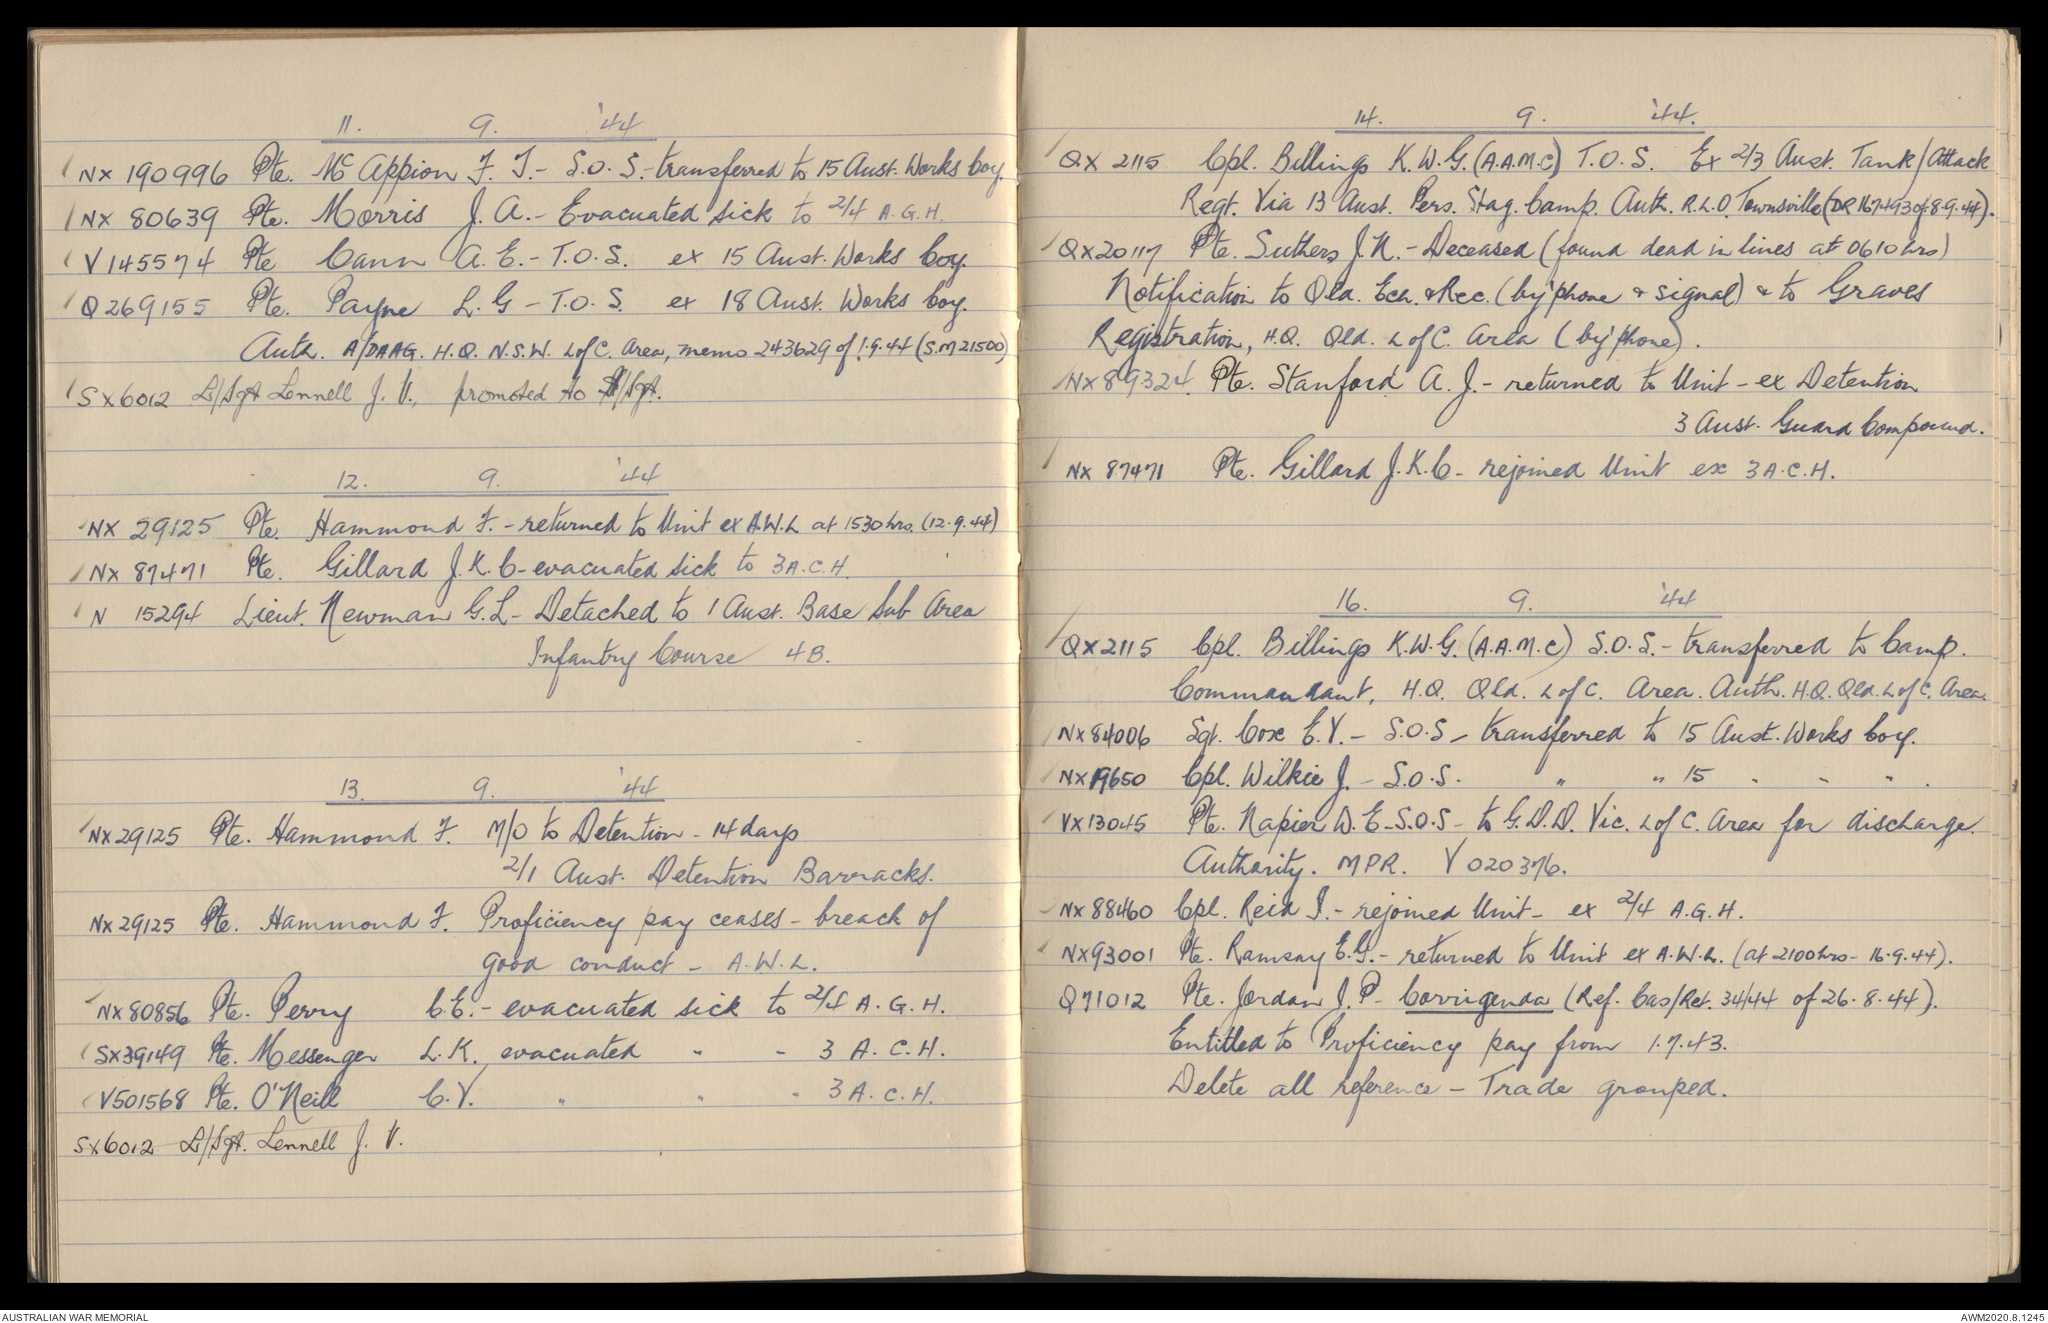 11. 9. '44
NX 190996 Pte. McAppion F. J. - S.O.S. - transferred to 15 Aust. Works Coy.
NX 80639 Pte. Morris J. A. - Evacuated sick to 2/4 A.G.H.
V 145574 Pte Cann A. E. - T.O.S. ex 15 Aust. Works Coy.
Q 269155 Pte. Payne L. G - T.O.S. ex 18 Aust. Works Coy.
Auth. A/DAAG. H.Q. N.S.W. L of C. Area, memo 243629 of 1.9.44 (S.M 21500)
SX6012 L/Sgt Lennell J. V., promoted to S/Sgt.
12. 9. '44
NX 29125 Pte. Hammond F. - returned to Unit ex A.W.L at 1530 hrs. (12.9.44)
NX 87471 Pte. Gillard J. K. C - evacuated sick to 3 A.C.H.
N 15294 Lieut. Newman G. L - Detached to 1 Aust. Base Sub Area
Infantry Course 4B.
13. 9. '44
NX 29125 Pte. Hammond F. M/O to Detention - 14 days
2/1 Aust. Detention Barracks.
NX 29125 Pte. Hammond F. Proficiency pay ceases - breach of
good conduct - A.W.L.
NX 80856 Pte. Perry C.E. - evacuated sick to 2/4 A.G.H.
SX39149 Pte. Messenger L.K. evacuated " " 3 A.C.H.
V501568 Pte. O'Neill C.V. " " " 3 A.C.H.
SX6012 L/Sgt. Lennell J. V.
14. 9. '44.
QX 2115 Cpl. Billings K.W.G. (A.A.M.C) T.O.S. Ex 2/3 Aust. Tank/Attack
Regt. Via 13 Aust. Pers. Stag. Camp. Auth. R.L.O. Townsville (DR 167493 of 8.9.44).
QX20117 Pte. Suthers J.N. - Deceased (found dead in lines at 0610 hrs)
Notification to Qld. Ech. & Rec. (by 'phone & signal) & to Graves
Registration, H.Q. Qld. L of C. Area (by 'phone).
NX89324. Pte. Stanford A. J. - returned to Unit - ex Detention
3 Aust. Guard Compound.
NX 87471 Pte. Gillard J.K.C - rejoined Unit ex 3 A.C.H.
16. 9. '44
QX2115 Cpl. Billings K.W.G. (A.A.M.C) S.O.S. - transferred to Camp.
Commandant, H.Q. Qld. L of C. Area. Auth. H.Q. Qld. L of C. Area.
NX84006 Sgt. Cox E.V. - S.O.S - transferred to 15 Aust. Works Coy.
NX19650 Cpl. Wilkie J. - S.O.S. " " 15 " " " .
VX13045 Pte. Napier D. E - S.O.S - to G.D.D. Vic. L of C. Area for discharge.
Authority. MPR. V 020376.
NX88460 Cpl. Reid I. - rejoined Unit - ex 2/4 A.G.H.
NX93001 Pte. Ramsay E.G. - returned to Unit ex A.W.L. (at 2100 hrs - 16.9.44).
Q71012 Pte. Jordan J.P - Corrigenda (Ref. Cas/Ret. 34/44 of 26.8.44).
Entitled to Proficiency pay from 1.7.43.
Delete all reference - Trade grouped.
AUSTRALIAN WAR MEMORIAL
AWM2020.8.1245